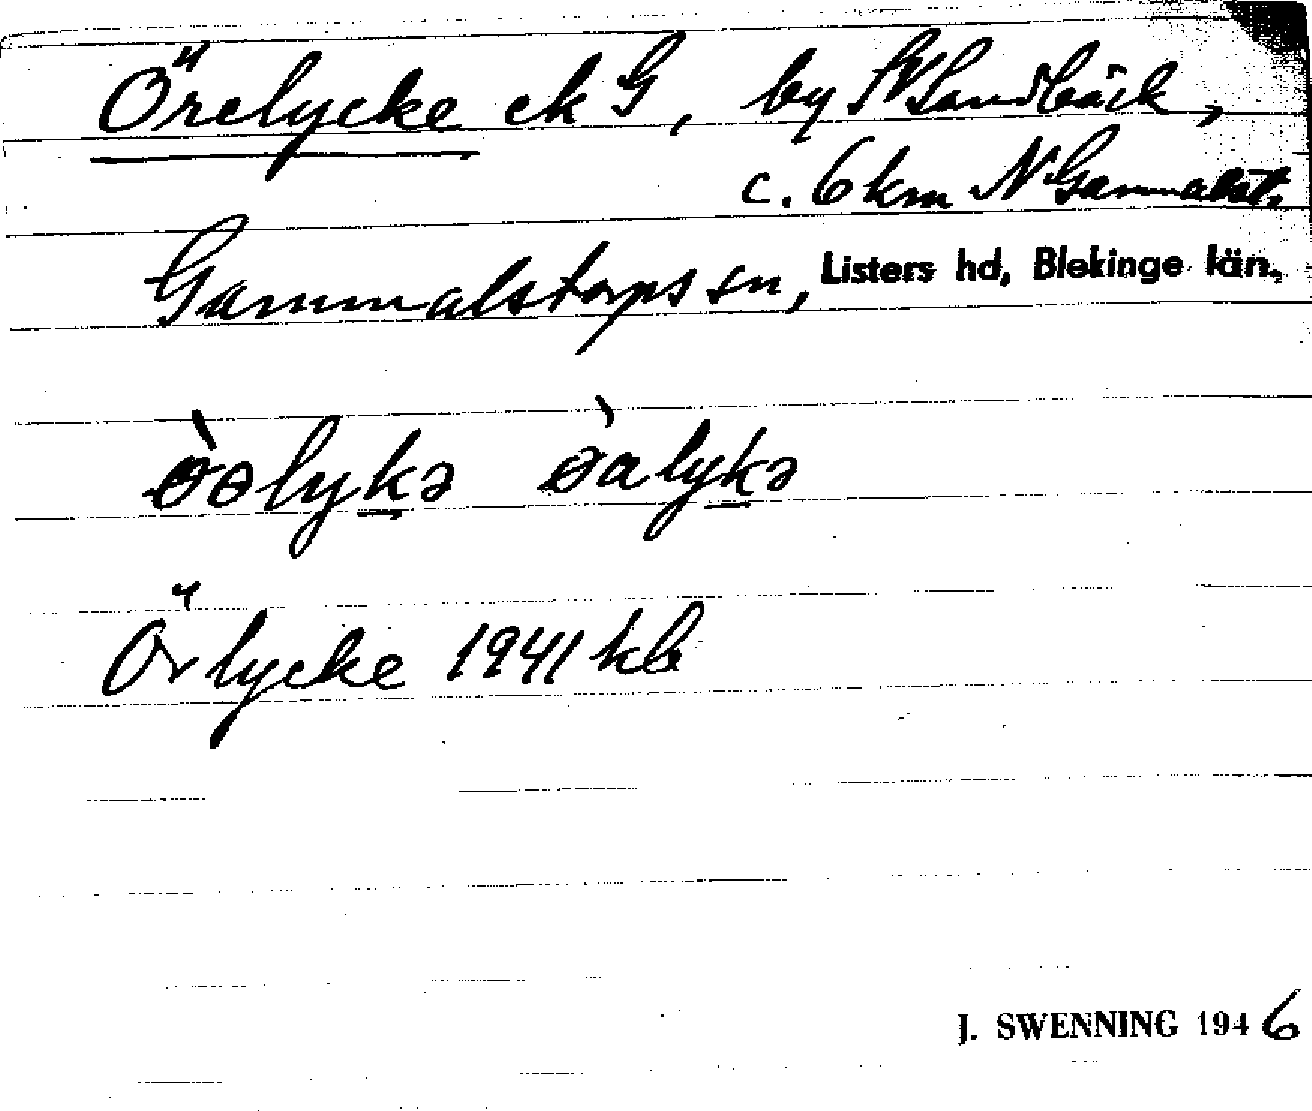 Örelycke ek G, by N Sandbäck,
c. 6 km N Gammalst.
Gammalstorps sn, Listers hd, Blekinge län.
Örlycke 1941 kb
J. SWENNING 1946